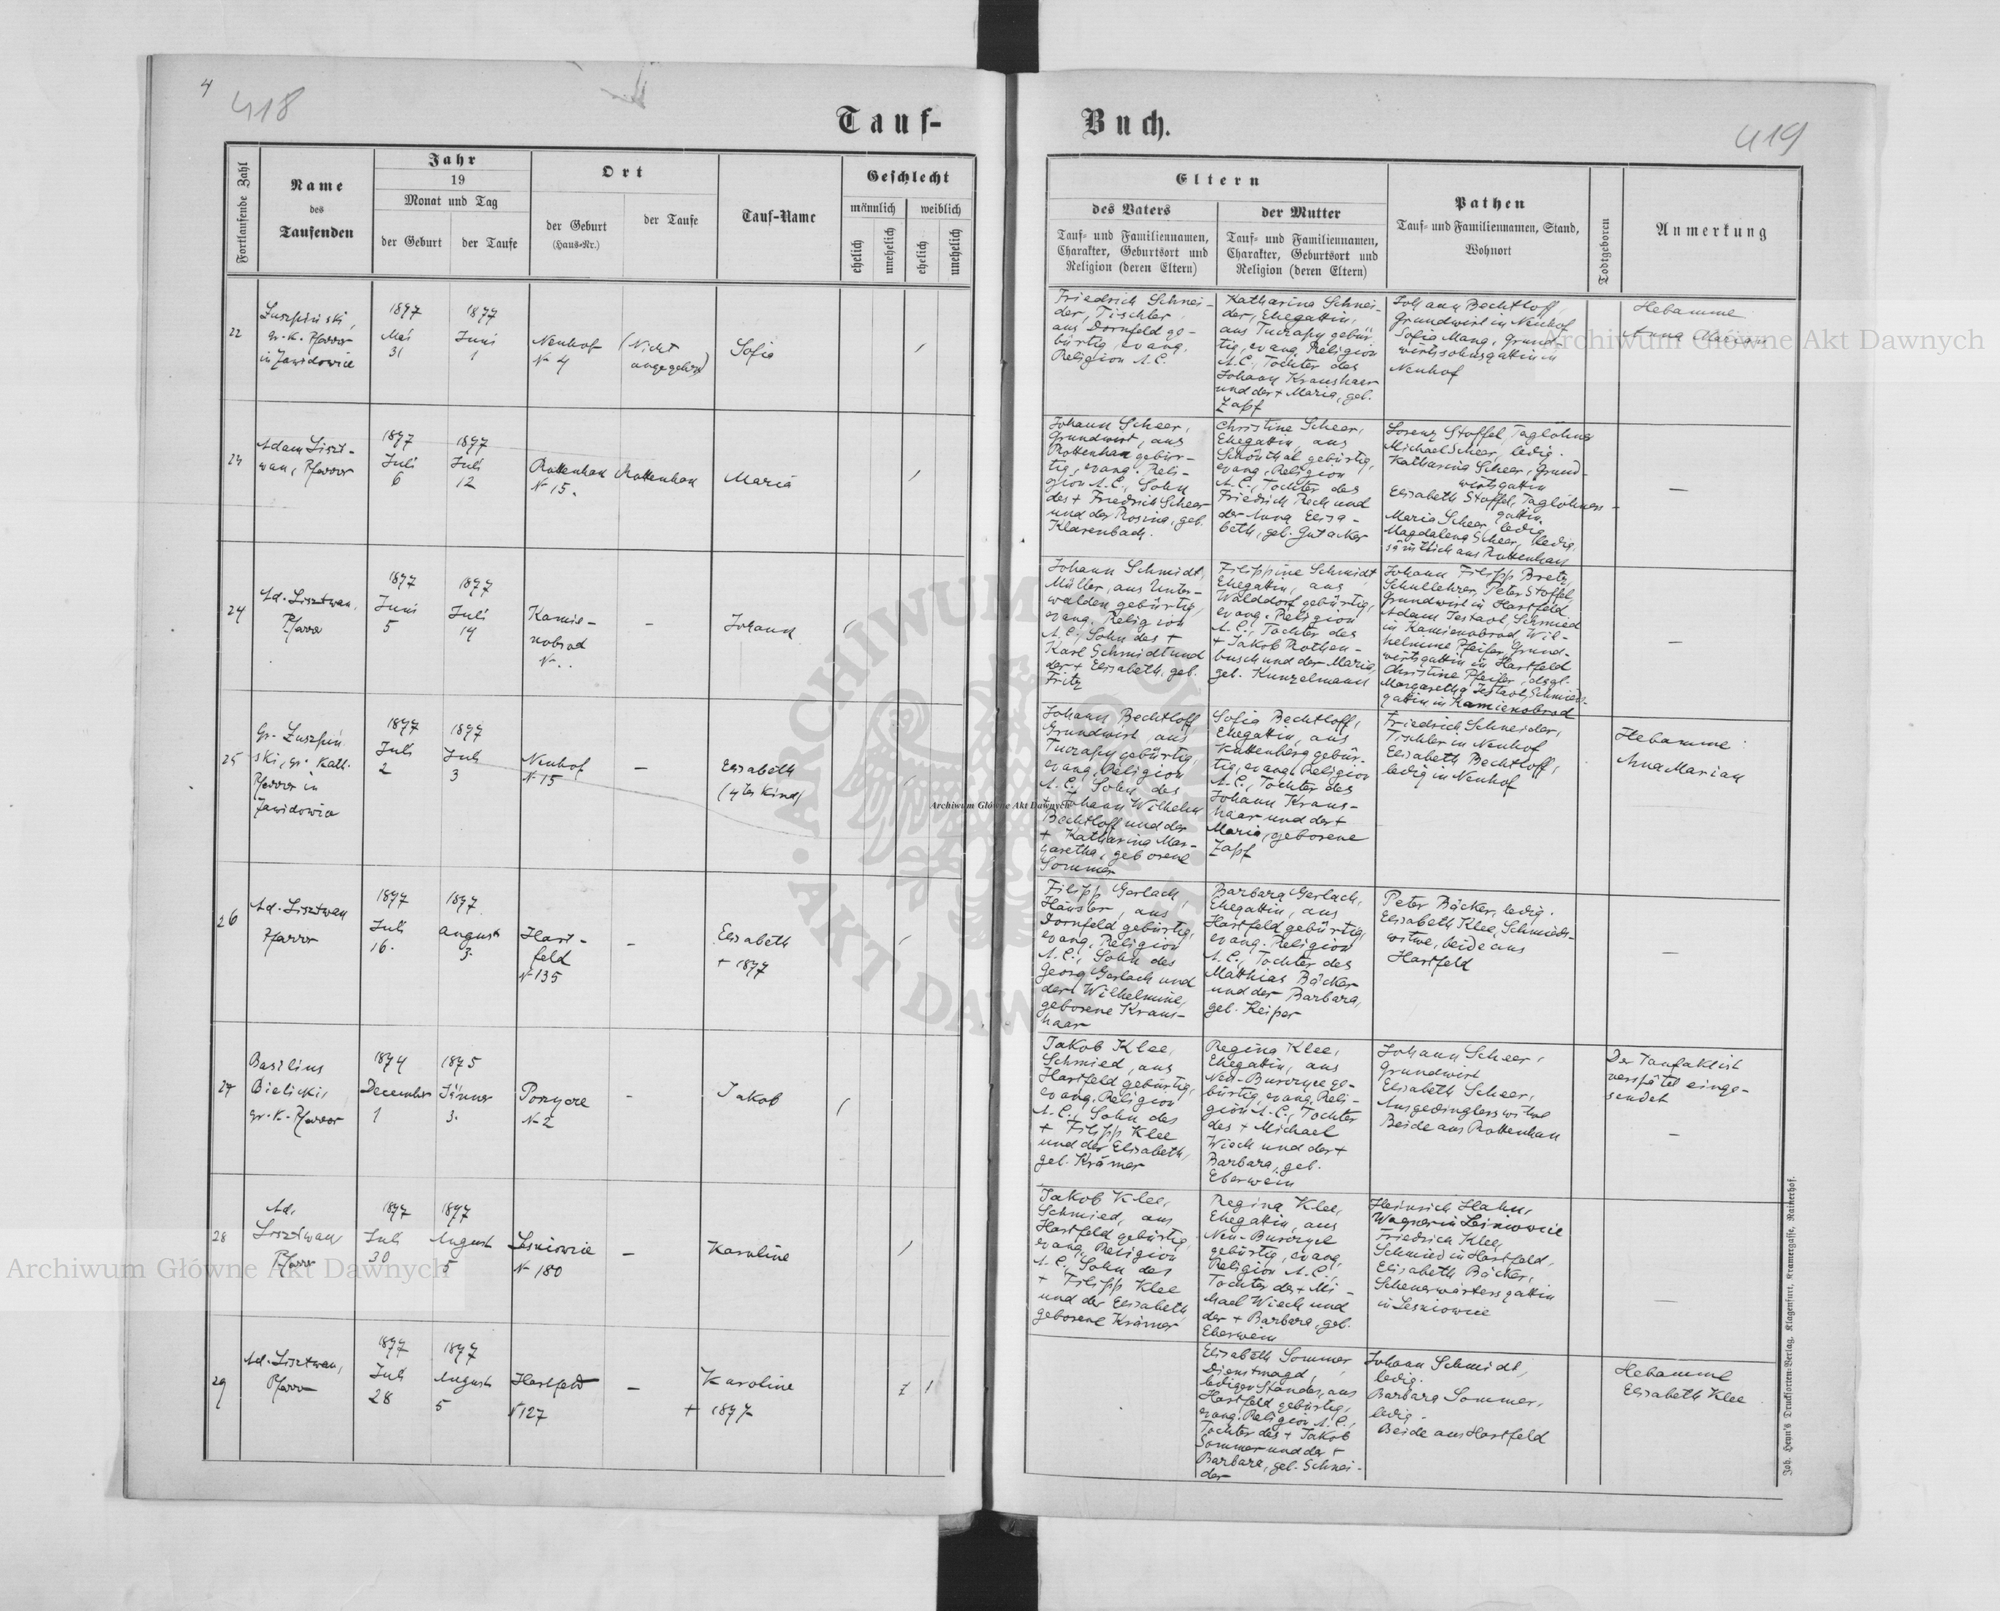 4
418
Tauf-
Fortlaufende Zahl
Name
des
Taufenden
Jahr
19
Monat und Tag
der Geburt
der Taufe
Ort
der Geburt
(Haus-Nr.)
der Taufe
Tauf-Name
Geschlecht
männlich
weiblich
ehelich
unehelich
ehelich
unehelich
22
gr. K. Pfarrer
1877
Mai
31
1877
Juni
1
Neuhof
Nr 4
(Nicht
angegeben)
Sofia
23
Adam Liszt-
wan, Pfarrer
1877
Juli
6
1877
Juli
12
Rottenhan
Nr 15.
Rottenhan
Maria
24
Ad. Lisztwan,
Pfarrer
1877
Juni
5
1877
Juli
14
Kamie-
nobrod
Nr ..
-
Johann
25
Pfarrer in
1877
Juli
2
1877
Juli
3
Neuhof
Nr 15
-
Elisabeth
(4tes Kind)
26
Ad. Lisztwan
Pfarrer
1877
Juli
16.
1877
August
3.
Hart-
feld
Nr 135
-
Elisabeth
+ 1877
27
Basilius
Bielicki,
gr. K. Pfarrer
1874
December
1
1875
Jänner
3.
Porzyce
Nr 2
-
Jakob
28
Ad.
Lisztwan
Pfarrer
1877
Juli
30
1877
August
5
Lesniowice
Nr 180
-
Karoline
29
Ad. Lisztwan,
Pfarrer
1877
Juli
28
1877
August
5
Hartfeld
Nr 127
-
Karoline
+ 1877
Buch.
419
Eltern
des Vaters
Tauf- und Familiennamen,
Charakter, Geburtsort und
Religion (deren Eltern)
der Mutter
Tauf- und Familiennamen,
Charakter, Geburtsort und
Religion (deren Eltern)
Pathen
Tauf- und Familiennamen, Stand,
Wohnort
Todtgeboren
Anmerkung
Friedrich Schnei-
der, Tischler,
aus Dornfeld ge-
bürtig, evang.
Religion A.C.
Katharina Schnei-
der, Ehegattin,
aus Tuczapy gebür-
tig, evang. Religion
A.C., Tochter des
Johann Kraushaar
und der + Maria, geb.
Zapf
Johann Bechtloff,
Grundwirt in Neuhof
Sofia Mang, Grund-
wirtssohnsgattin in
Neuhof
Hebamme
Anna Marian
Johann Scheer,
Grundwirt, aus
Rottenhan gebür-
tig, evang. Reli-
gion A.C., Sohn
des + Friedrich Scheer
und der Rosina, geb.
Klarenbach.
Christine Scheer,
Ehegattin, aus
Schönthal gebürtig,
evang. Religion
A.C., Tochter des
Friedrich Rech und
der Anna Elisa-
beth, geb. Gutacker
Lorenz Stoffel, Taglöhner
Michael Scheer, ledig.
Katharina Scheer, Grund-
wirtsgattin
Elisabeth Stoffel, Taglöhners-
gattin.
Maria Scheer, ledig
Magdalena Scheer, ledig,
sämtlich aus Rottenhan
-
Johann Schmidt,
Müller, aus Unter-
walden gebürtig,
evang. Religion
A.C., Sohn des +
Karl Schmidt und
der + Elisabeth, geb.
Fritz
Filippine Schmidt,
Ehegattin, aus
Walddorf gebürtig,
evang. Religion
A.C., Tochter des
+ Jakob Rothen-
busch und der Maria,
geb. Kunzelmann
Johann Filipp Bretz,
Schullehrer, Peter Stoffel,
Grundwirt in Hartfeld
Adam Jestadt, Schmied
in Kamienobrod Wil-
helmine Pfeifer, Grund-
wirtsgattin in Hartfeld
Christine Pfeifer, dsgl.
Margaretha Jestadt, Schmieds-
gattin in Kamienobrod
-
Johann Bechtloff
Grundwirt, aus
Tuczapy gebürtig,
evang. Religion
A.C., Sohn des
+ Johann Wilhelm
Bechtloff und der
+ Katharina Mar-
garetha, geborene
Sommer
Sofia Bechtloff,
Ehegattin, aus
Kuttenberg gebür-
tig, evang. Religion
A.C., Tochter des
Johann Kraus-
haar und der +
Maria, geborene
Zapf
Friedrich Schneider,
Tischler in Neuhof
Elisabeth Bechtloff,
ledig in Neuhof
Hebamme:
Anna Marian
Filipp Gerlach,
Häusler, aus
Dornfeld gebürtig,
evang. Religion
A.C., Sohn des
Georg Gerlach und
der Wilhelmine,
geborene Kraus-
haar
Barbara Gerlach,
Ehegattin, aus
Hartfeld gebürtig,
evang. Religion
A.C., Tochter des
Matthias Bäcker
und der Barbara,
geb. Keiper
Peter Bäcker, ledig.
Elisabeth Klee, Schmieds-
witwe, beide aus
Hartfeld
-
Jakob Klee,
Schmied, aus
Hartfeld gebürtig,
evang. Religion
A.C., Sohn des
+ Filipp Klee
und der Elisabeth,
geb. Krämer
Regina Klee,
Ehegattin, aus
Neu-Burczyce ge-
bürtig, evang. Reli-
gion A.C., Tochter
des + Michael
Wiech und der +
Barbara, geb.
Eberwein
Johann Scheer,
Grundwirt
Elisabeth Scheer,
Ausgedingterswitwe
Beide aus Rottenhan
Der Taufakt ist
verspätet einge-
sendet
-
Jakob Klee,
Schmied, aus
Hartfeld gebürtig,
evang. Religion
A.C., Sohn des
+ Filipp Klee
und der Elisabeth,
geborene Krämer
Regina Klee,
Ehegattin, aus
Neu-Burczyce
gebürtig, evang.
Religion A.C.,
Tochter des + Mi-
chael Wiech und
der + Barbara, geb.
Eberwein
Heinrich Hahn,
Wagner in Lesniowice
Friedrich Klee,
Schmied in Hartfeld,
Elisabeth Bäcker,
in Lesniowice
-
Elisabeth Sommer,
Dienstmagd,
ledigen Standes, aus
Hartfeld gebürtig,
evang. Religion A.C.,
Tochter des + Jakob
Sommer und der +
Barbara, geb. Schnei-
der
Johann Schmidt,
ledig.
Barbara Sommer,
ledig.
Beide aus Hartfeld
Hebamme
Elisabeth Klee
Joh. Heyn's Drucksorten-Verlag, Klagenfurt, Kramergasse, Rainerhof.
Archiwum Główne Akt Dawnych
Archiwum Główne Akt Dawnych
Archiwum Główne Akt Dawnych
ARCHIWUM GŁÓWNE · AKT DAWNYCH ·